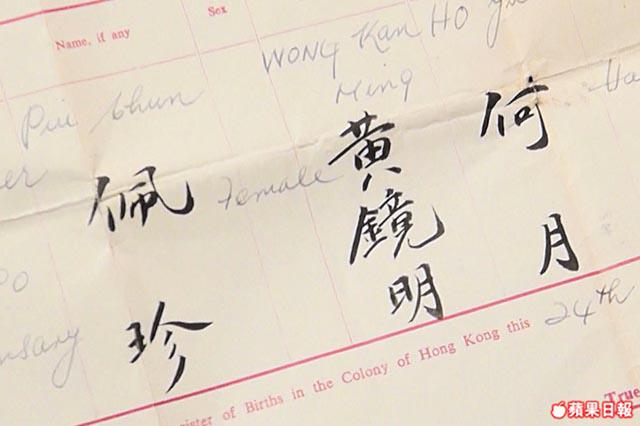 Name, if any
Sex
WONG Kan
Ming
HO
Pui Chun
Female
佩珍
黃鏡明
何月
24th
ister of Births in the Colony of Hong Kong this
True
蘋果日報